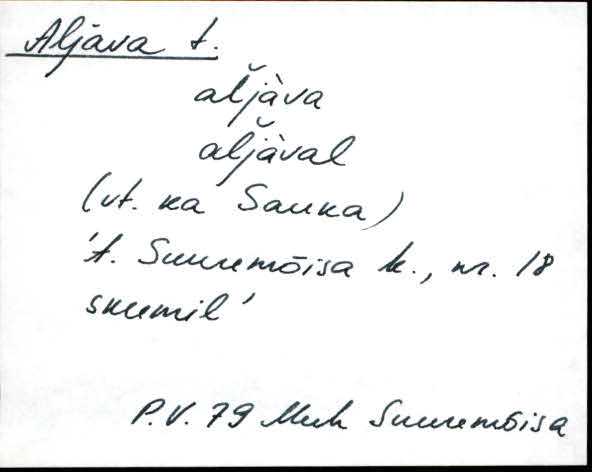 Aljava t.
alj̆àva
alj̆àval
(vt. ka Sauka)
't. Suuremõisa k., nr. 18
skeemil'
P.V. 79 Muh Suuremõisa